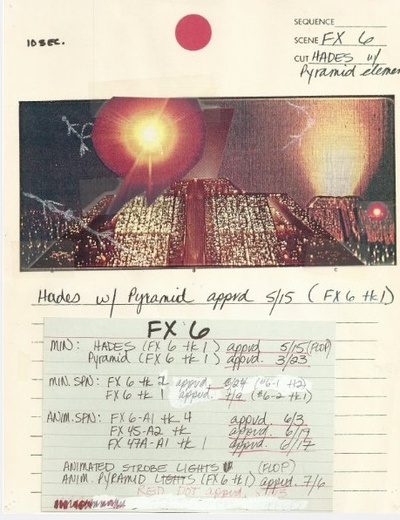 SEQUENCE
10 SEC.
SCENE FX 6
CUT HADES w/
Pyramid elemen
Hades w/ Pyramid apprvd 5/15 (FX 6 tk 1)
FX 6
MIN: HADES (FX 6 tk 1) apprvd. 5/15 (FLOP)
Pyramid (FX 6 tk 1) apprvd. 3/23
MIN. SPN: FX 6 tk 2 apprvd. (#6-1 +2)
FX 6 tk 1 apprvd. 7/2 (#6-2 tk1)
ANIM. SPN: FX 6-A1 tk 4 apprvd 6/3
FX 45-A2 tk apprvd. 6/19
FX 47A-A1 tk 1 apprvd. 6/17
ANIMATED STROBE LIGHTS (FLOP)
ANIM. PYRAMID LIGHTS (FX 6 tk 1) apprvd. 7/6
RED DOT apprvd.